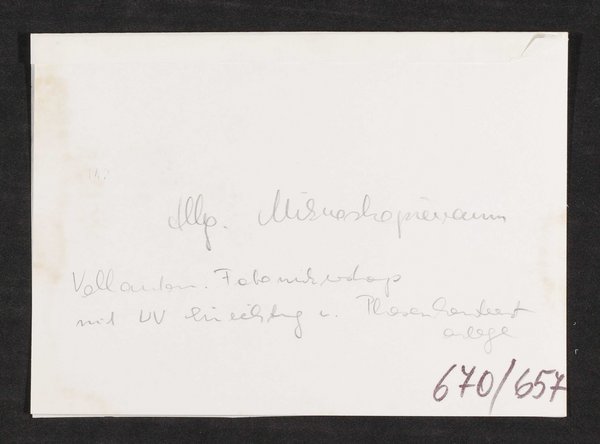 Allg. Mikroskopieraum
Vollautom. Fotomikroskop
mit UV Einrichtg u. Phasenkontrast
anlage
670/657